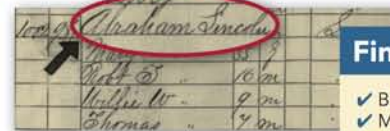 Abraham Lincoln
Mary " 35 f
Robt T " 16 m
Willie W " 9 m
Thomas " 7 m
Fin
✔ B
✔ M